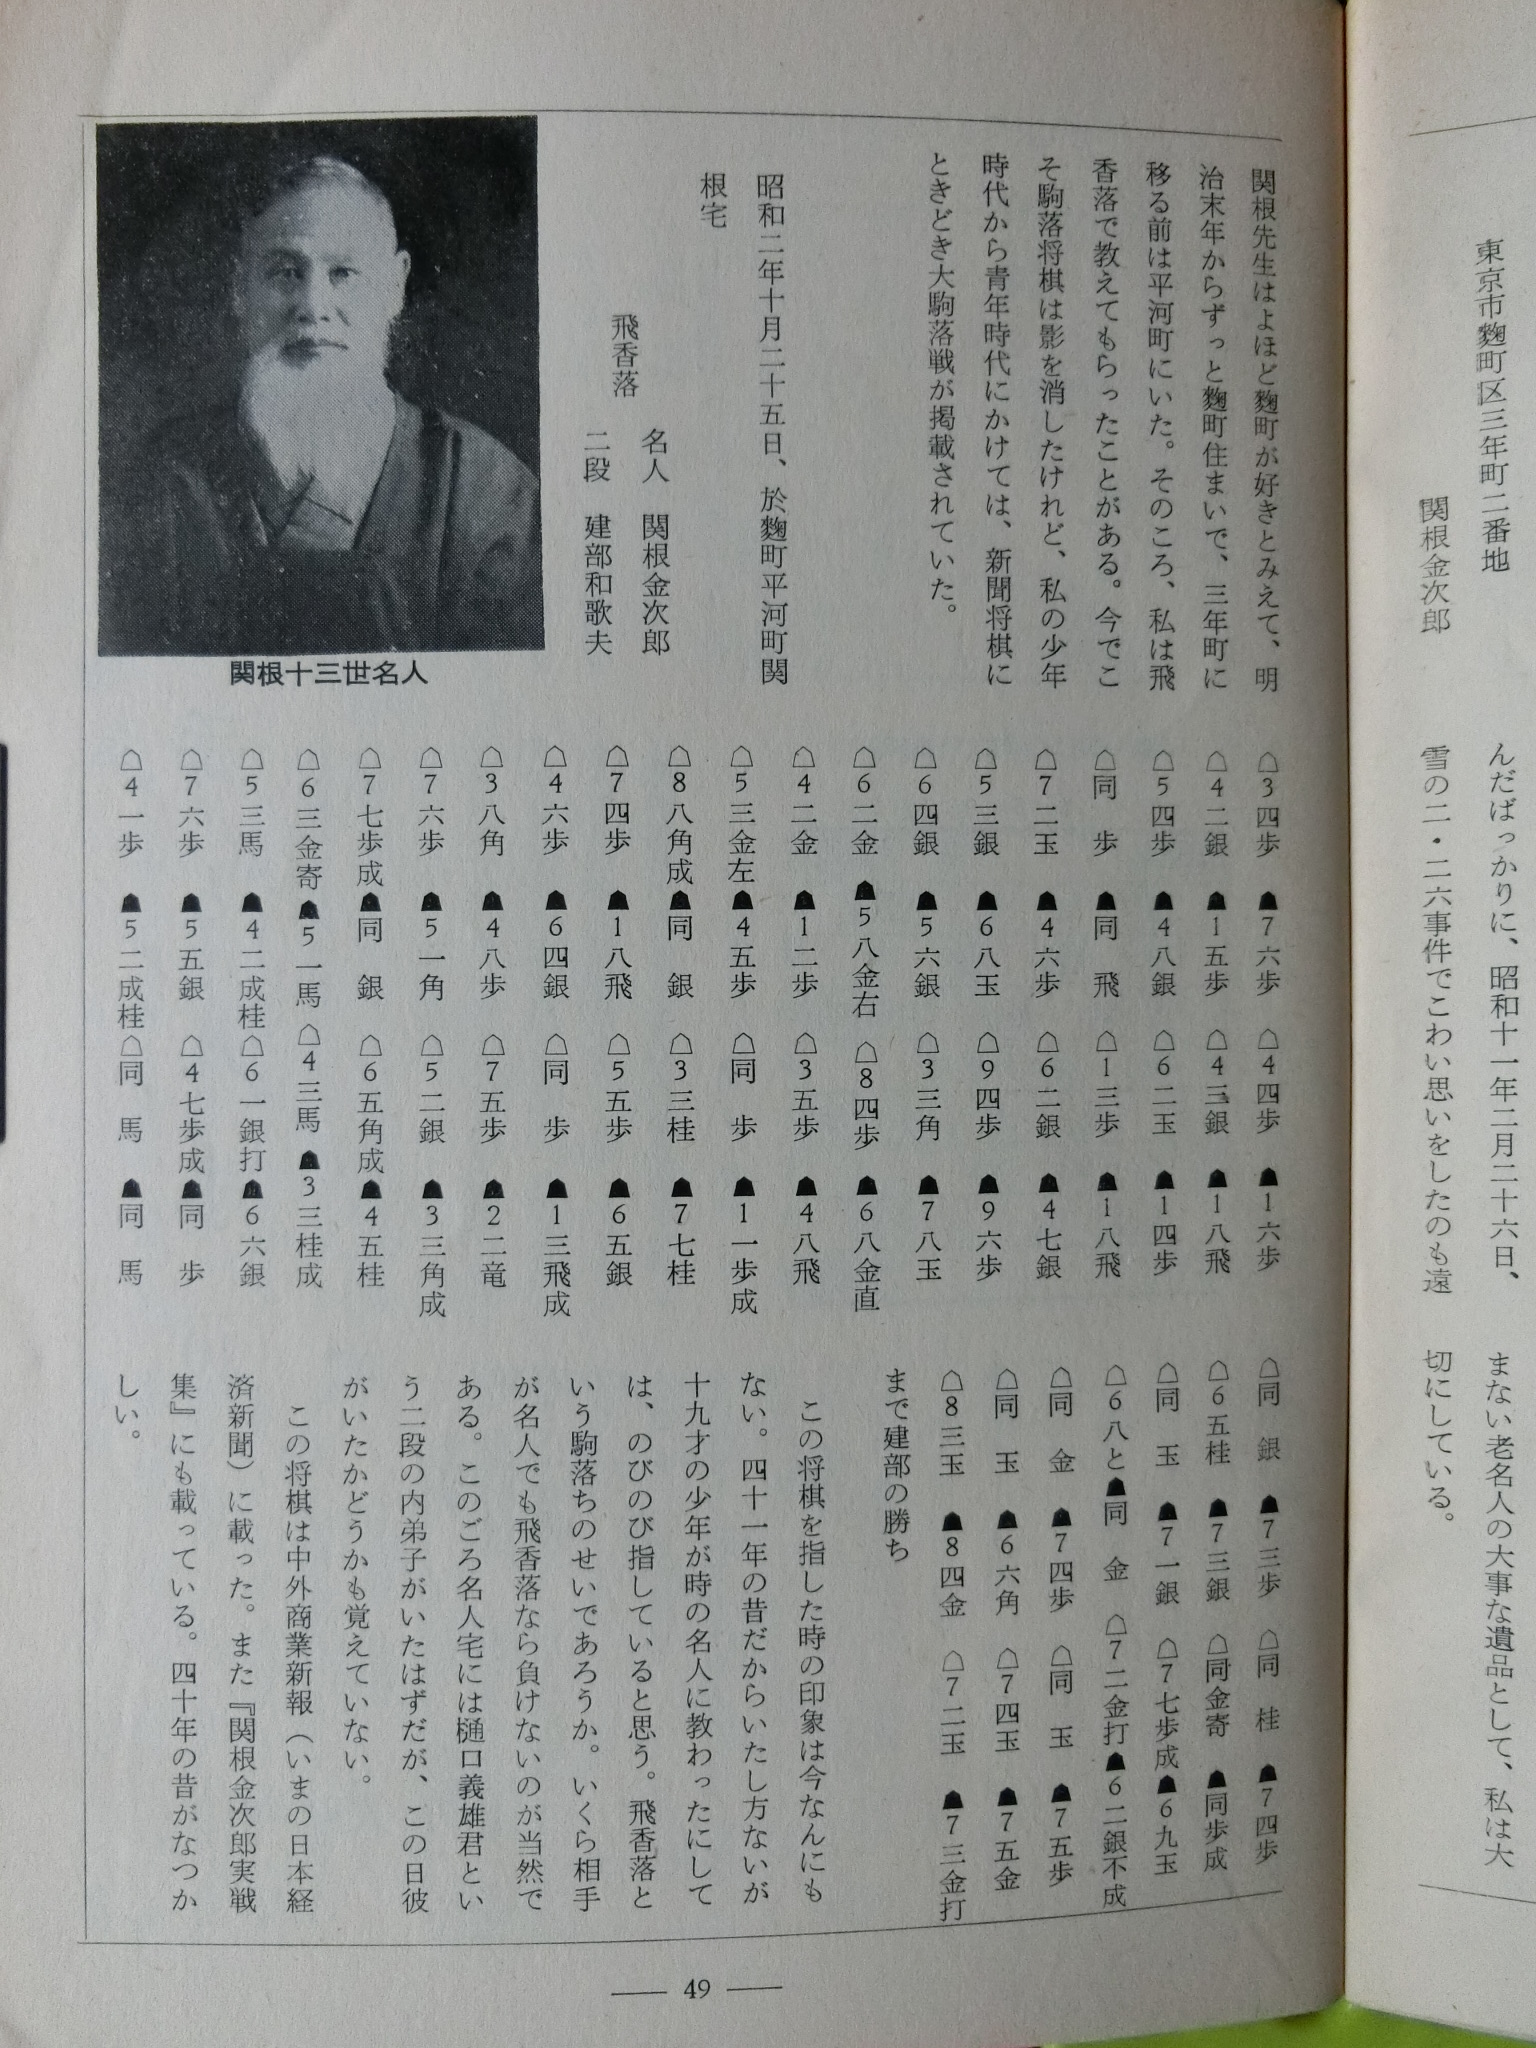 東京市麴町区三年町二番地
関根金次郎
んだばっかりに、昭和十一年二月二十六日、
雪の二・二六事件でこわい思いをしたのも遠
まない老名人の大事な遺品として、私は大
切にしている。
関根先生はよほど麴町が好きとみえて、明
治末年からずっと麴町住まいで、三年町に
移る前は平河町にいた。そのころ、私は飛
香落で教えてもらったことがある。今でこ
そ駒落将棋は影を消したけれど、私の少年
時代から青年時代にかけては、新聞将棋に
ときどき大駒落戦が掲載されていた。
昭和二年十月二十五日、於麴町平河町関
根宅
飛香落
名人 関根金次郎
二段 建部和歌夫
関根十三世名人
☖3四歩 ☗7六歩 ☖4四歩 ☗1六歩
☖4二銀 ☗1五歩 ☖4三銀 ☗1八飛
☖5四歩 ☗4八銀 ☖6二玉 ☗1四歩
☖同 歩 ☗同 飛 ☖1三歩 ☗1八飛
☖7二玉 ☗4六歩 ☖6二銀 ☗4七銀
☖5三銀 ☗6八玉 ☖9四歩 ☗9六歩
☖6四銀 ☗5六銀 ☖3三角 ☗7八玉
☖6二金 ☗5八金右 ☖8四歩 ☗6八金直
☖4二金 ☗1二歩 ☖3五歩 ☗4八飛
☖5三金左 ☗4五歩 ☖同 歩 ☗1一歩成
☖8八角成 ☗同 銀 ☖3三桂 ☗7七桂
☖7四歩 ☗1八飛 ☖5五歩 ☗6五銀
☖4六歩 ☗6四銀 ☖同 歩 ☗1三飛成
☖3八角 ☗4八歩 ☖7五歩 ☗2二竜
☖7六歩 ☗5一角 ☖5二銀 ☗3三角成
☖7七歩成 ☗同 銀 ☖6五角成 ☗4五桂
☖6三金寄 ☗5一馬 ☖4三馬 ☗3三桂成
☖5三馬 ☗4二成桂 ☖6一銀打 ☗6六銀
☖7六歩 ☗5五銀 ☖4七歩成 ☗同 歩
☖4一歩 ☗5二成桂 ☖同 馬 ☗同 馬
☖同 銀 ☗7三歩 ☖同 桂 ☗7四歩
☖6五桂 ☗7三銀 ☖同金寄 ☗同歩成
☖同 玉 ☗7一銀 ☖7七歩成 ☗6九玉
☖6八と ☗同 金 ☖7二金打 ☗6二銀不成
☖同 金 ☗7四歩 ☖同 玉 ☗7五歩
☖同 玉 ☗6六角 ☖7四玉 ☗7五金
☖8三玉 ☗8四金 ☖7二玉 ☗7三金打
まで建部の勝ち
この将棋を指した時の印象は今なんにも
ない。四十一年の昔だからいたし方ないが
十九才の少年が時の名人に教わったにして
は、のびのび指していると思う。飛香落と
いう駒落ちのせいであろうか。いくら相手
が名人でも飛香落なら負けないのが当然で
ある。このごろ名人宅には樋口義雄君とい
う二段の内弟子がいたはずだが、この日彼
がいたかどうかも覚えていない。
この将棋は中外商業新報（いまの日本経
済新聞）に載った。また『関根金次郎実戦
集』にも載っている。四十年の昔がなつか
しい。
― 49 ―